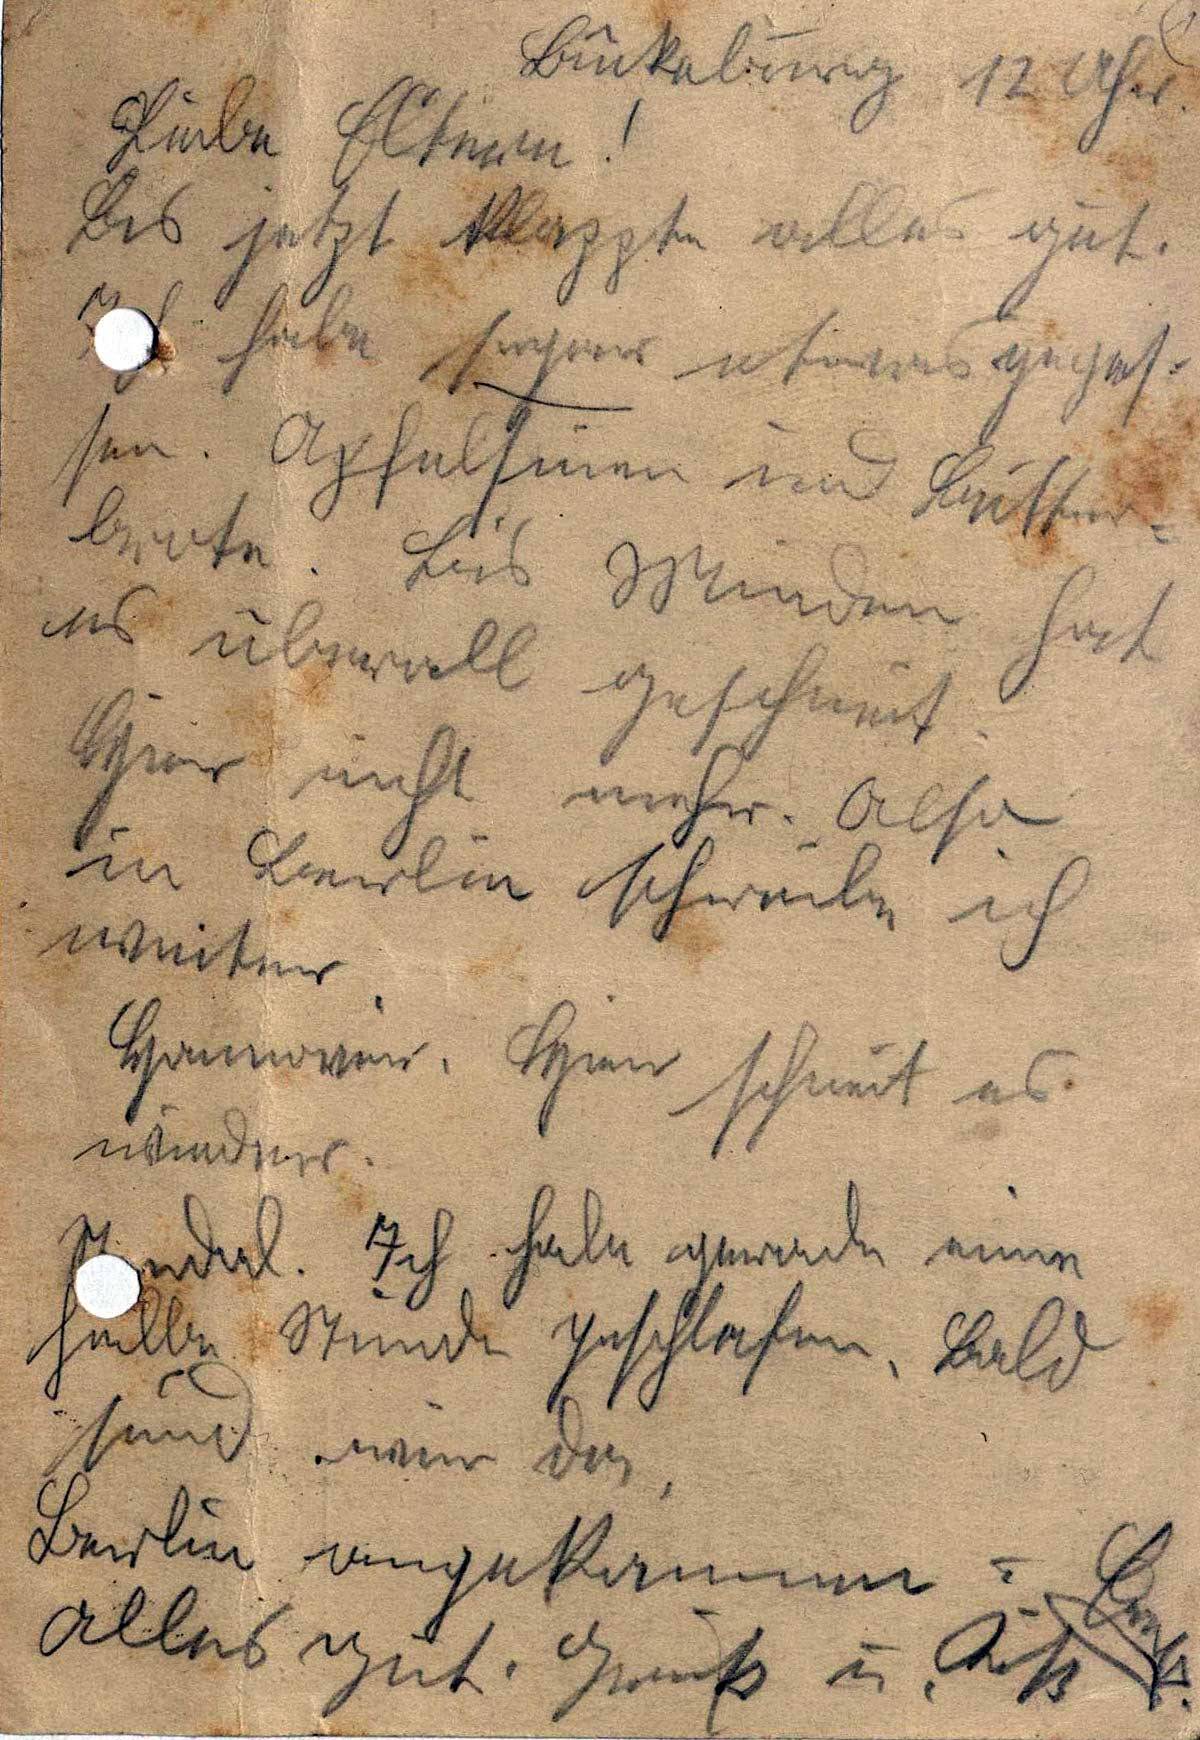 Bückeburg 12 Uhr.
Liebe Eltern!
Bis jetzt klappte alles gut.
Ich habe sogar etwas geges-
sen. Apfelsinen und Butter-
brote. Bis Minden hat
es überall geschneit.
Hier nicht mehr. Also
in Berlin schreibe ich
weiter.
Hannover. Hier schneit es
wieder.
Stendal. Ich habe gerade eine
halbe Stunde geschlafen. Bald
sind wir da.
Berlin angekommen =
Alles gut. Gruß u. Kuß